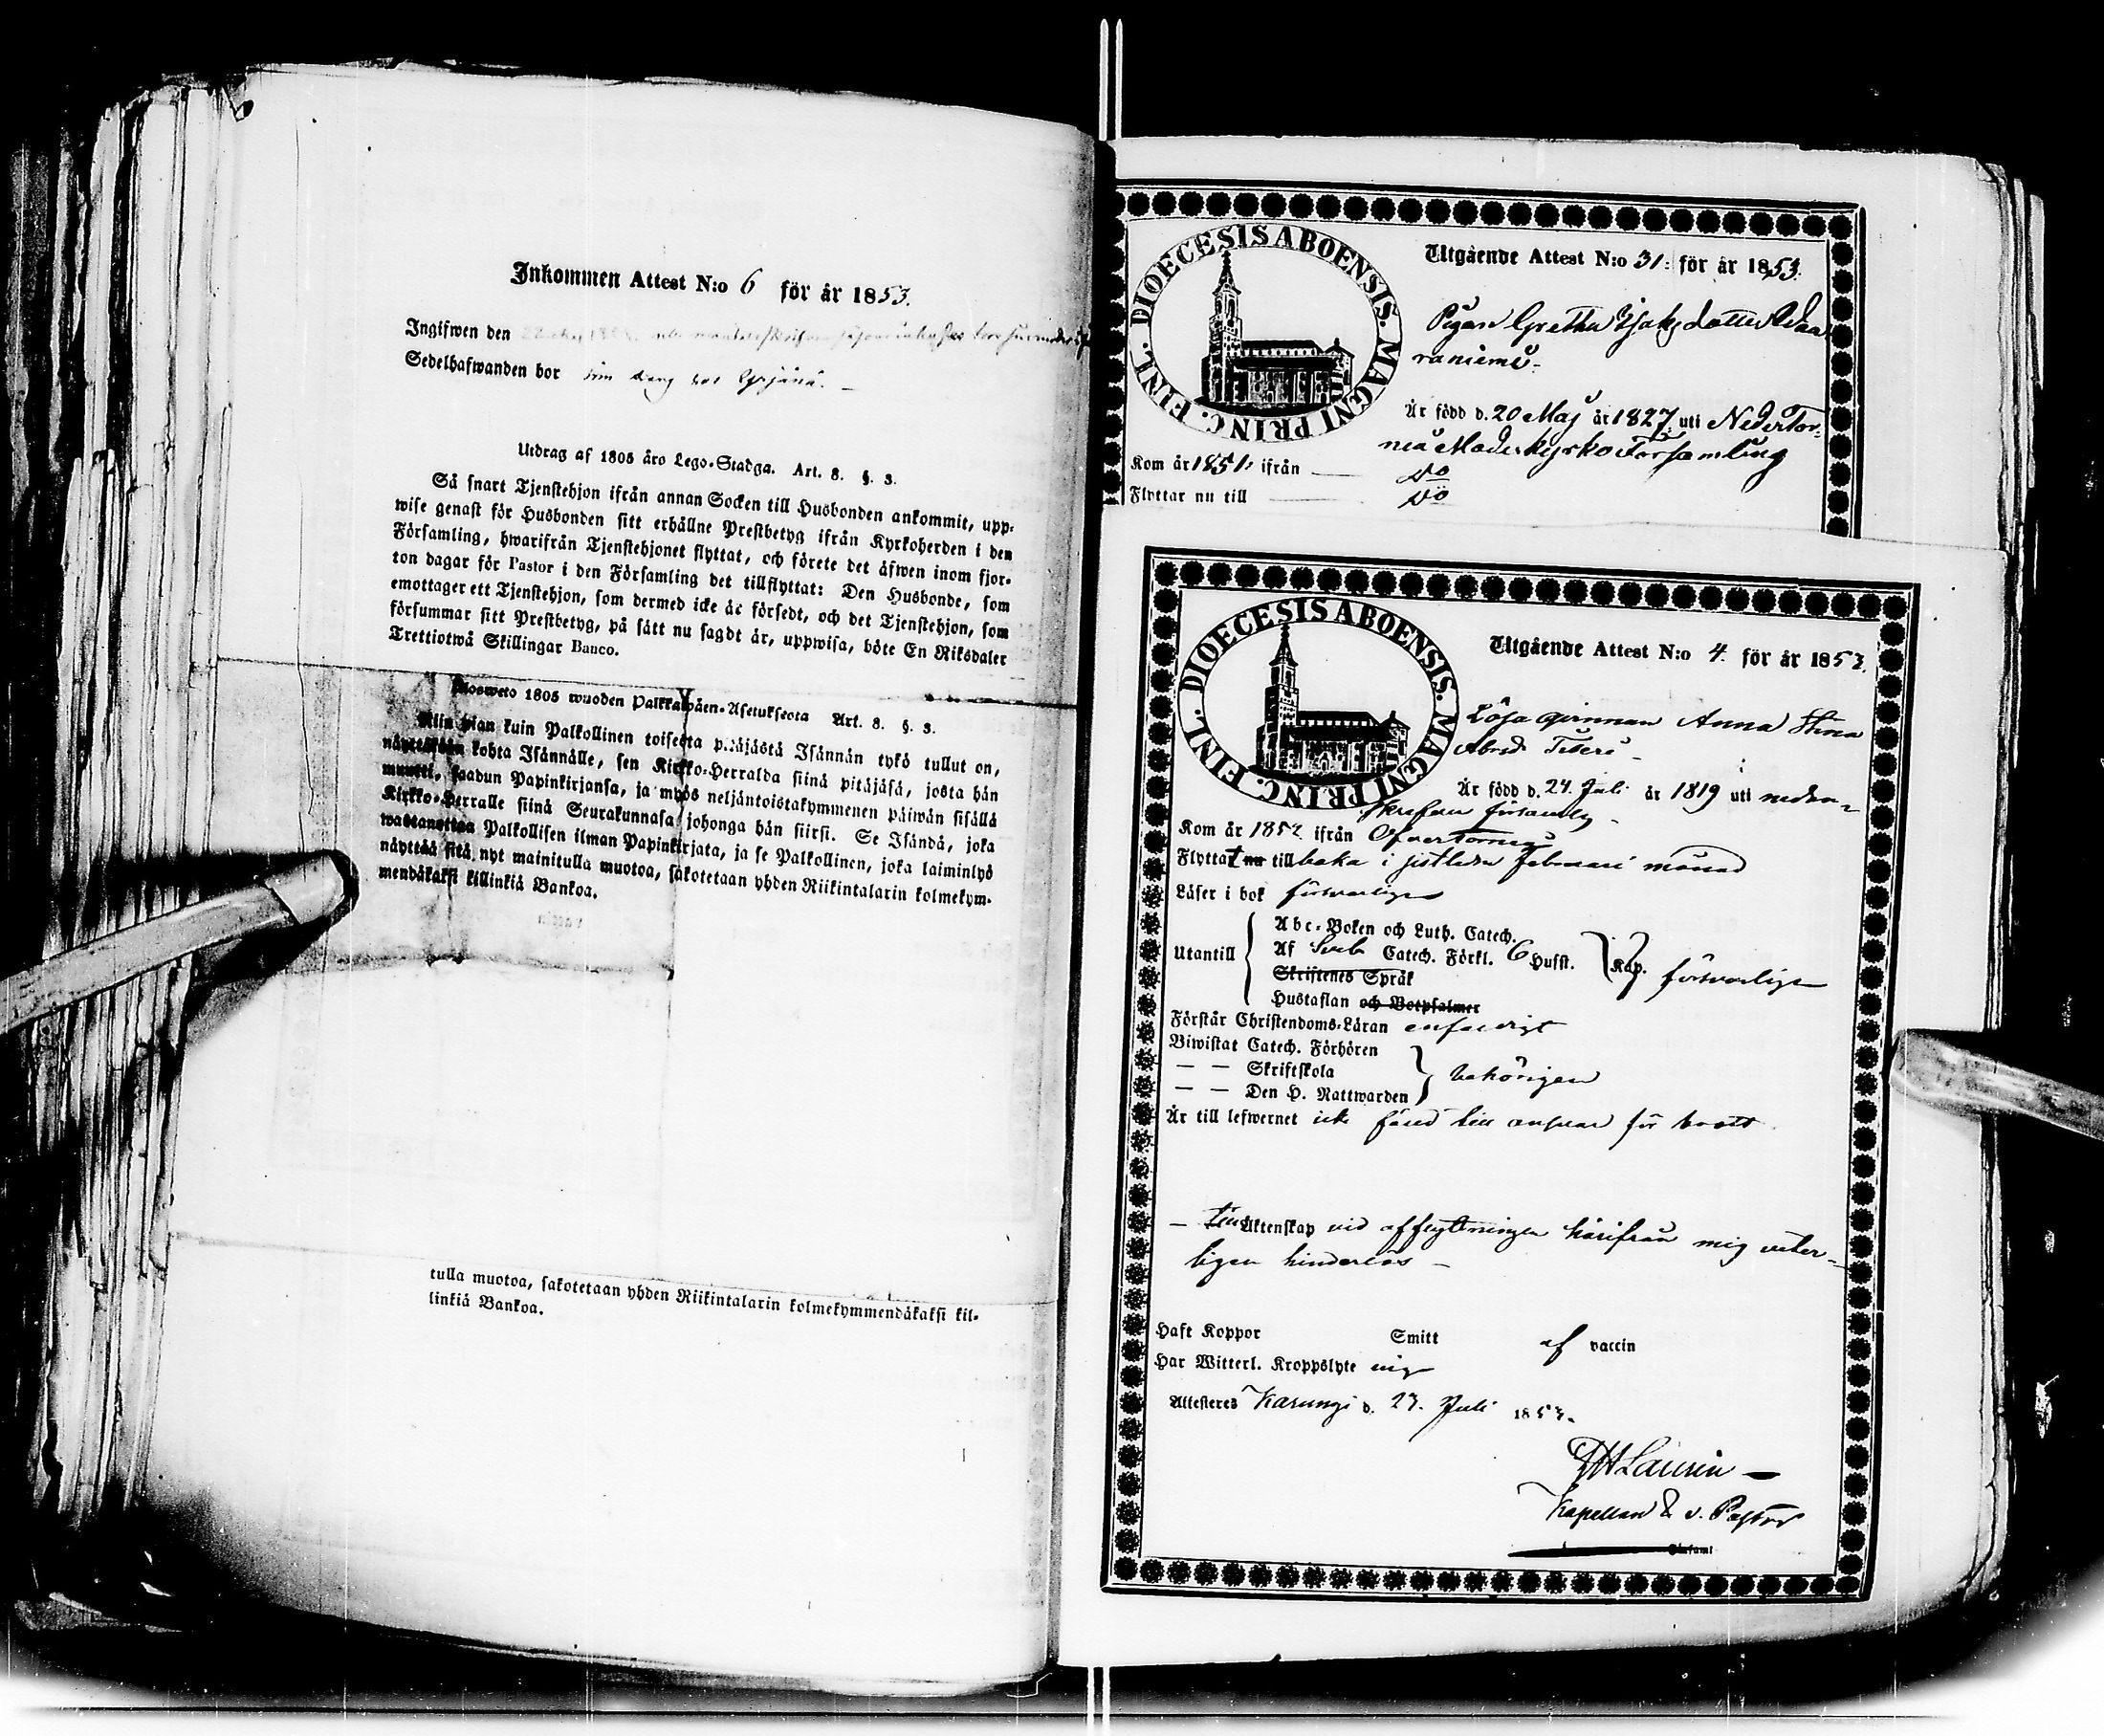 Inkommen Attest N:o 6 för år 1853.
Ingifwen den
Sedelhafwanden bor som dräng hos
Utdrag af 1805 års Lego-Stadga. Art. 8. §. 3.
Så snart Tjenstehjon ifrån annan Socken till Husbonden ankommit, upp-
wise genast för Husbonden sitt erhållne Prestbetyg ifrån Kyrkoherden i den
Församling, hwarifrån Tjenstehjonet flyttat, och förete det äfwen inom fjor-
ton dagar för Pastor i den Församling det tillflyttat: Den Husbonde, som
emottager ett Tjenstehjon, som dermed icke är försedt, och det Tjenstehjon, som
försummar sitt Prestbetyg, på sätt nu sagdt är, uppwisa, böte En Riksdaler
Trettiotwå Skillingar Banco.
Ulosweto 1805 wuoden Palkkawäen-Asetuksesta Art. 8. §. 3.
Niin pian kuin Palkollinen toisesta pitäjästä Isännän tykö tullut on,
näyttäkään kohta Isännälle, sen Kirkko-Herralda siinä pitäjäsä, josta hän
muutti, saadun Papinkirjansa, ja myös neljäntoistakymmenen päiwän sisällä
Kirkko-Herralle siinä Seurakunnasa johonga hän siirsi. Se Isändä, joka
wastanottaa Palkollisen ilman Papinkirjata, ja se Palkollinen, joka laiminlyö
näyttää sitä nyt mainitulla muotoa, sakotetaan yhden Riikintalarin kolmekym-
mendäkaksi killinkiä Bankoa.
vaccin
tulla muotoa, sakotetaan yhden Riikintalarin kolmekymmendäkaksi kil-
linkiä Bankoa.
DIOECESIS ABOENSIS. MAGNI PRINC. FINL.
Utgående Attest N:o 31: för år 1853.
Pigan Gretha Isaksdotter Waa
raniemi.
Är född d. 20 Maj år 1827. uti NederTor-
neå Moderkyrko Församling
Kom år 1851. ifrån — do
Flyttar nu till — do
DIOECESIS ABOENSIS. MAGNI PRINC. FINL.
Utgående Attest N:o 4. för år 1853.
Lösa qvinnan Anna Stina
Abrd.
Är född d. 24. Juli år 1819 uti nedan-
skrefven församlg
Kom år 1852 ifrån Öfvertorneå
Flyttat nu tillbaka i sistleden Februari månad
Läser i bok försvarligen
Utantill
Abc-Boken och Luth. Catech.
Af Sveb. Catech. Förkl. 6 Hufst. Kap. försvarligen
Skriftenes Språk
Hustaflan och Botpsalmer
Förstår Christendoms-Läran enfaldigt
Biwistat Catech. Förhören
— — Skriftskola behörigen
— — Den H. Nattwarden
Är till lefwernet icke förd till answar för brott
— till Äktenskap vid afflyttningen härifrån mig veter-
ligen hinderlös —
Haft Koppor Smitt af vaccin
Har Witterl. Kroppslyte inga
Attesteras Karungi d. 23. Juli 1853.
Laurin —
Kapellan & v. Pastor